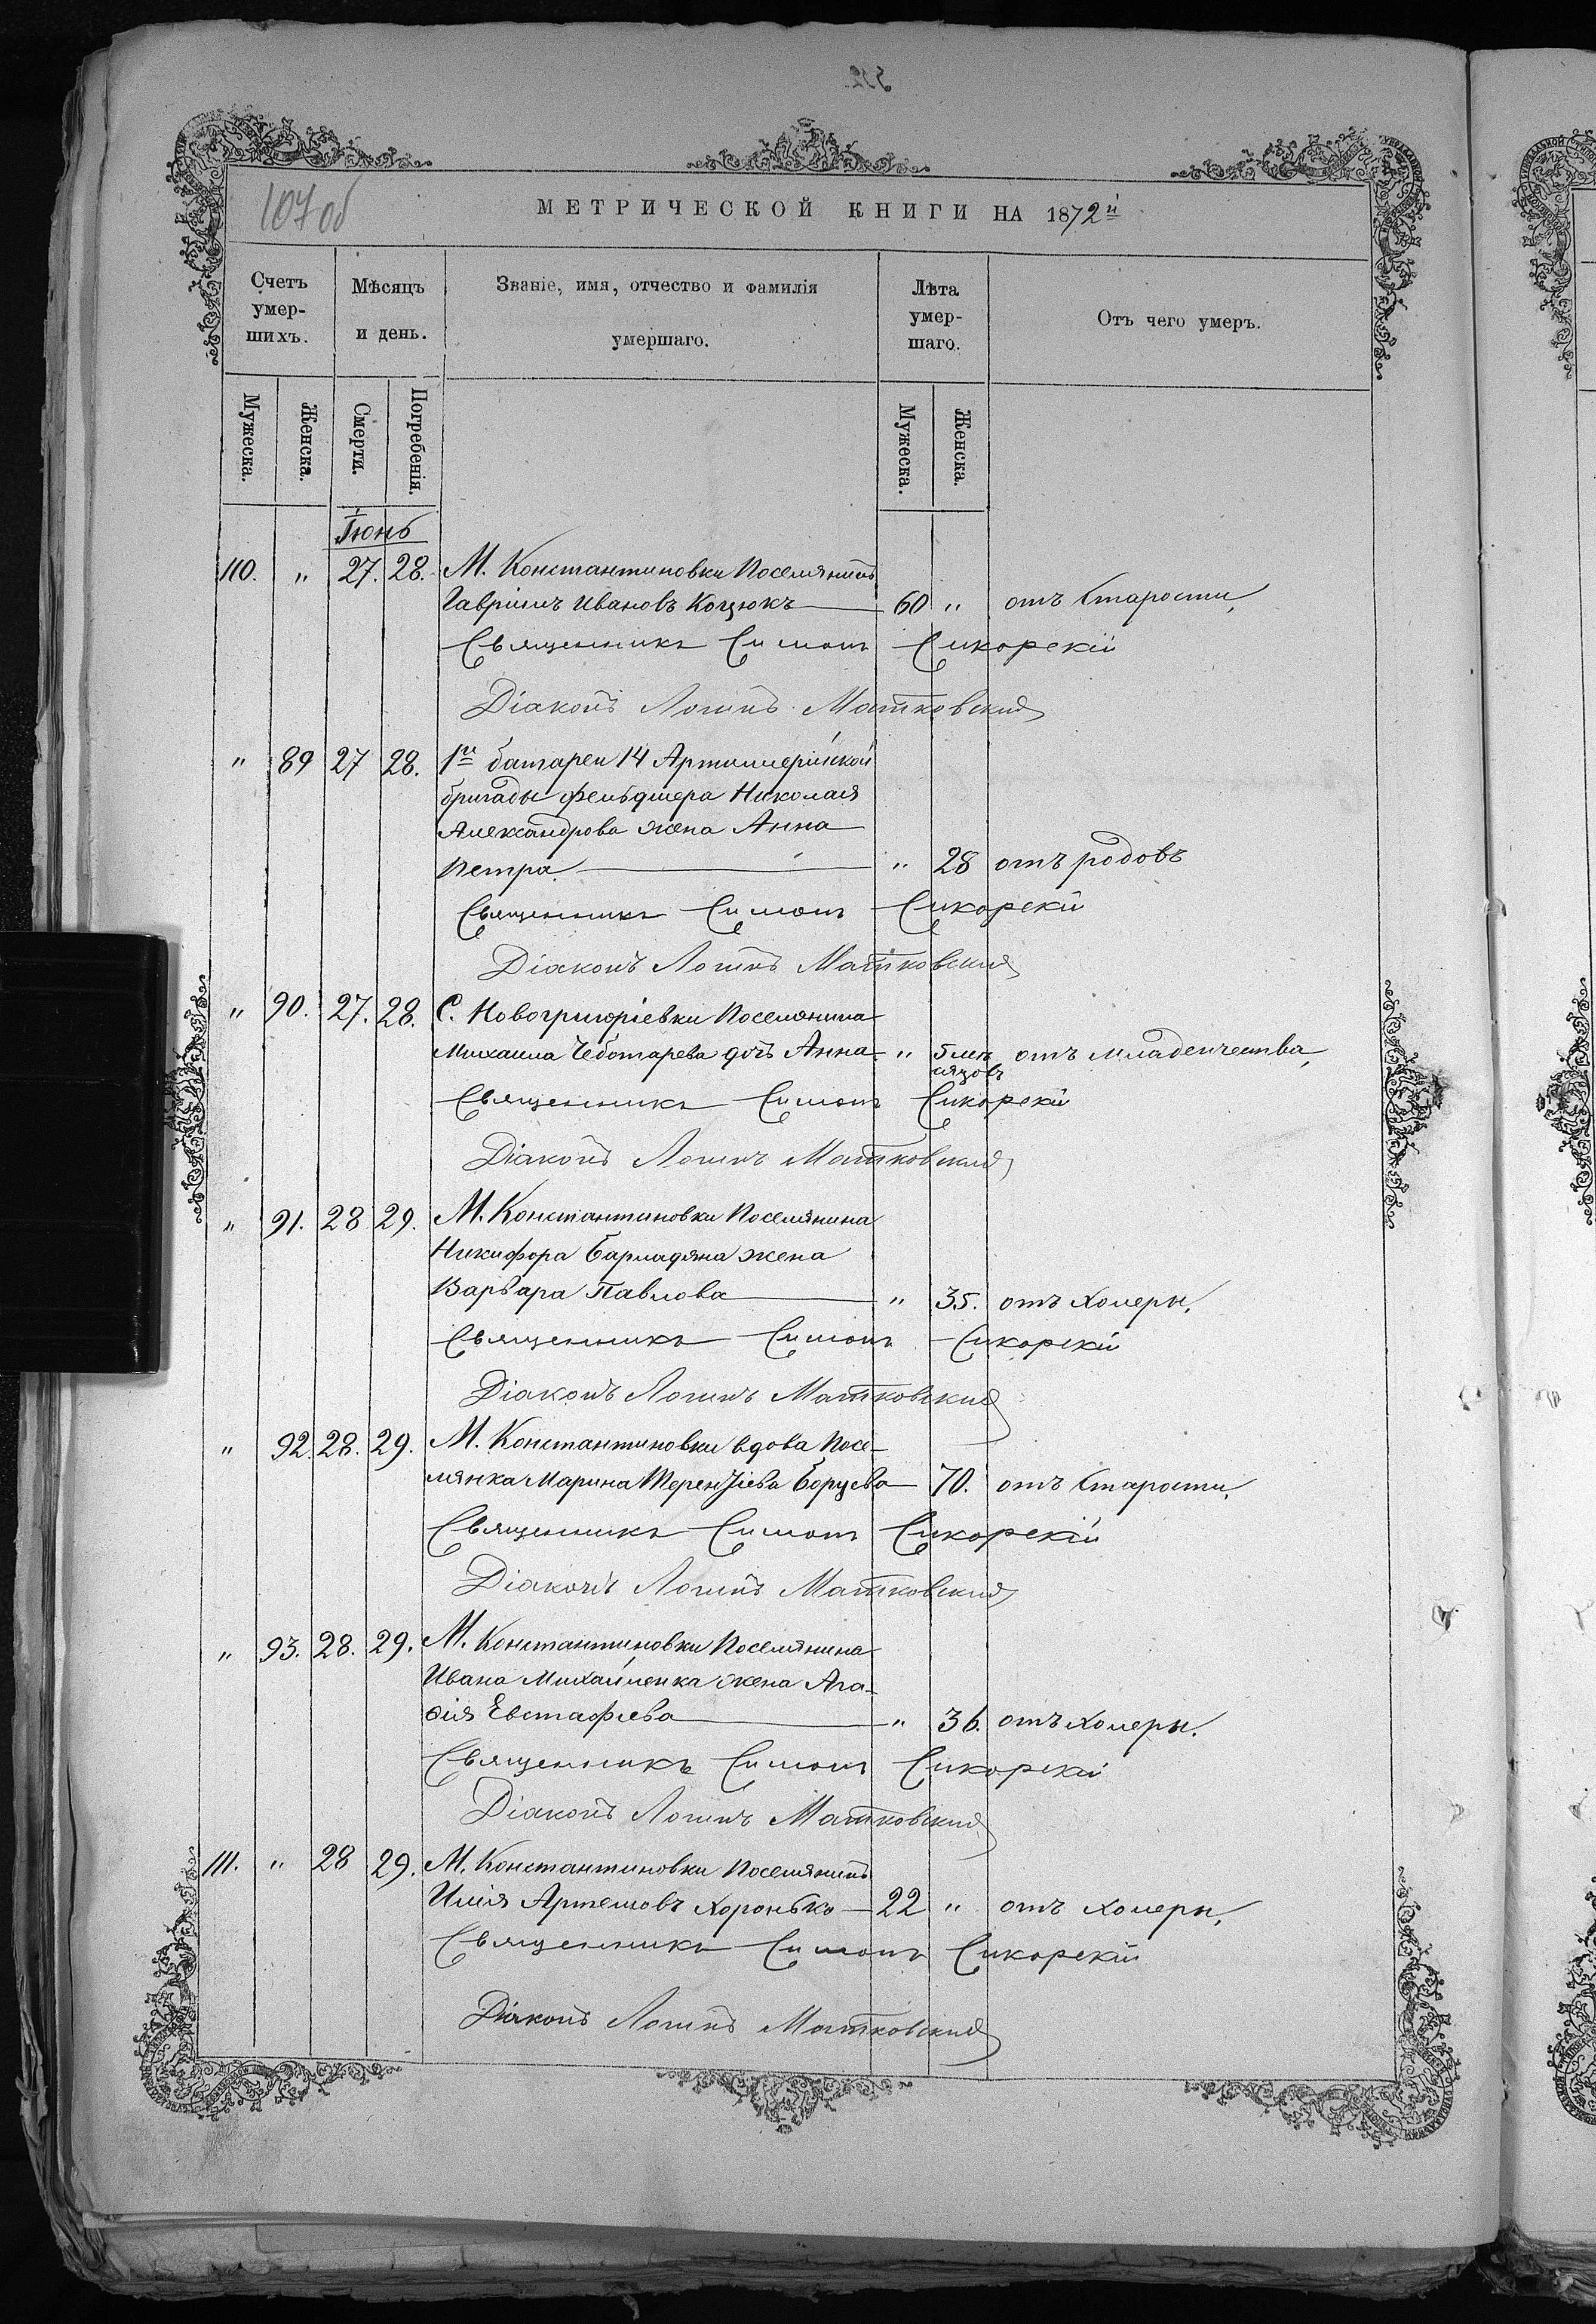 107 об
МЕТРИЧЕСКОЙ КНИГИ НА 1872й
Счетъ умер-шихъ. Мѣсяцъ и день. Званіе, имя, отчество и фамилія умершаго. Лѣта умер-шаго. Отъ чего умеръ.
Мужеска. Женска. Смерти. Погребенія. Мужеска. Женска.
Іюнь
110. " 27. 28. М. Константиновки Поселянинъ
Гавріилъ Ивановъ Коцюкъ 60 " отъ старости,
Священникъ Симонъ Сикорскій
Діаконъ Логинъ Матковский
" 89 27 28. 1й батареи 14 Артиллерійской
бригады фельдшера Николая
Александрова жена Анна
Петра " 28 отъ родовъ
Священникъ Симонъ Сикорскій
Діаконъ Логинъ Матковский
" 90. 27. 28. С. Новогригоріевки Поселянина
Михаила Чеботарева дочь Анна " 5 мѣ- отъ младенчества,
сяцовъ
Священникъ Симонъ Сикорскій
Діаконъ Логинъ Матковский
" 91. 28 29. М. Константиновки Поселянина
Никифора Барладяна жена
Варвара Павлова " 35. отъ холеры.
Священникъ Симонъ Сикорскій
Діаконъ Логинъ Матковский
" 92. 28. 29. М. Константиновки вдова Посе-
лянка Марина Терентіева Борцева 70. отъ старости.
Священникъ Симонъ Сикорскій
Діаконъ Логинъ Матковский
" 93. 28. 29. М. Константиновки Поселянина
Ивана Михайленка жена Ага-
ѳія Евстафіева " 36. отъ холеры.
Священникъ Симонъ Сикорскій
Діаконъ Логинъ Матковский
111. " 28 29. М. Константиновки Поселянинъ
Илія Артемовъ Хоронько 22 " отъ холеры.
Священникъ Симонъ Сикорскій
Діаконъ Логинъ Матковский